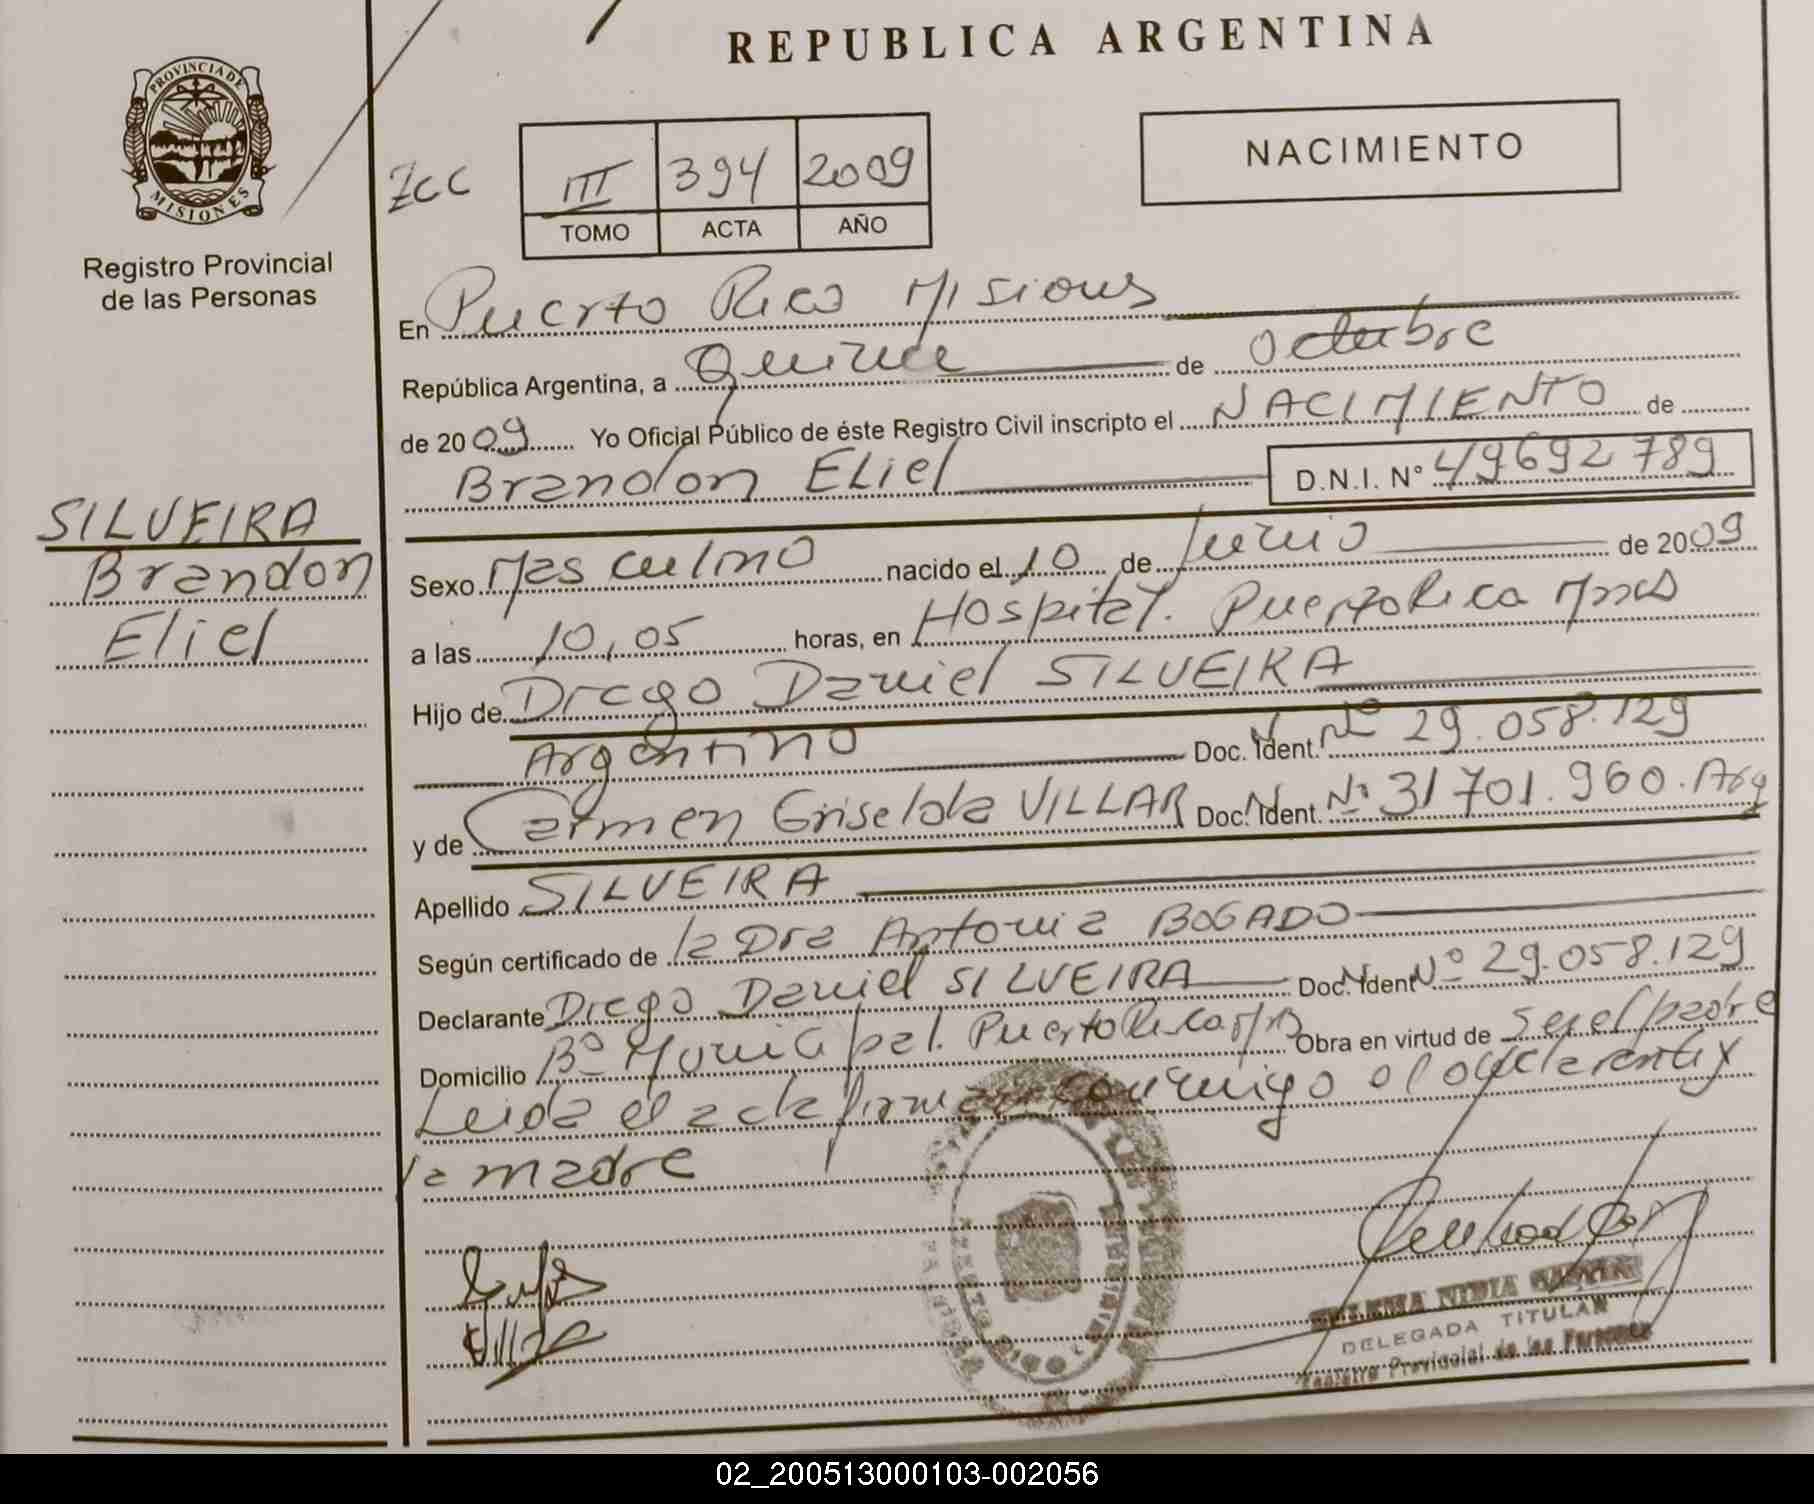 REPUBLICA ARGENTINA
PROVINCIA DE
MISIONES
Registro Provincial
de las Personas
NACIMIENTO
ZCC
III 394 2009
TOMO ACTA AÑO
En Puerto Rico Misiones
República Argentina, a Quince de Octubre
de 2009 Yo Oficial Público de éste Registro Civil inscripto el NACIMIENTO de
Brandon ELiel D.N.I. Nº 49692789
SILVEIRA
Brandon
Eliel
Sexo Masculino nacido el 10 de Junio de 2009
a las 10,05 horas, en Hospital. Puerto Rico Mnes
Hijo de Diego Daniel SILVEIRA
Argentino Doc. Ident. Nº 29.058.129
y de Carmen Griselda VILLAR Doc. Ident. Nº 31701.960. Arg
Apellido SILVEIRA
Según certificado de la Dra Antonia BOGADO
Declarante Diego Daniel SILVEIRA Doc. Ident Nº 29.058.129
Domicilio Bº Municipal. Puerto Rico Obra en virtud de ser el padre
Leida el acta firman conmigo el declarante y
la madre
DELEGADA TITULAR
Registro Provincial de las Personas
02_200513000103-002056